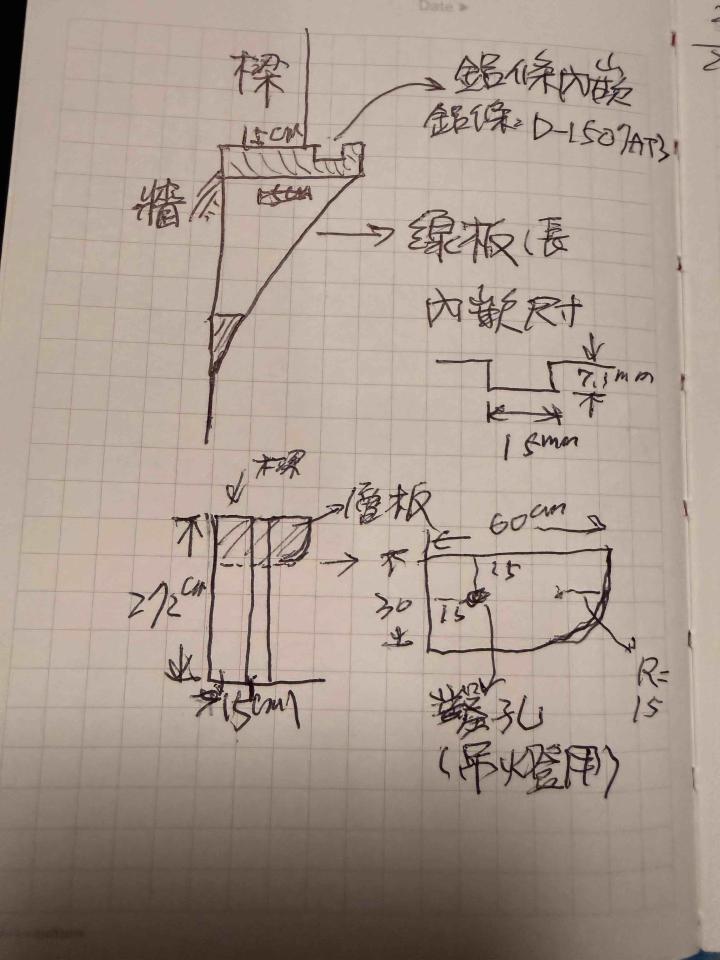 Date ▸
樑
15cm
鋁條內嵌
鋁條: D-1507AT3
牆
15cm
線板(長
內嵌尺寸
7.3mm
15mm
樑
層板
60cm
272cm
30
15
15
R=
15
15cm
鑿孔
(吊燈用)